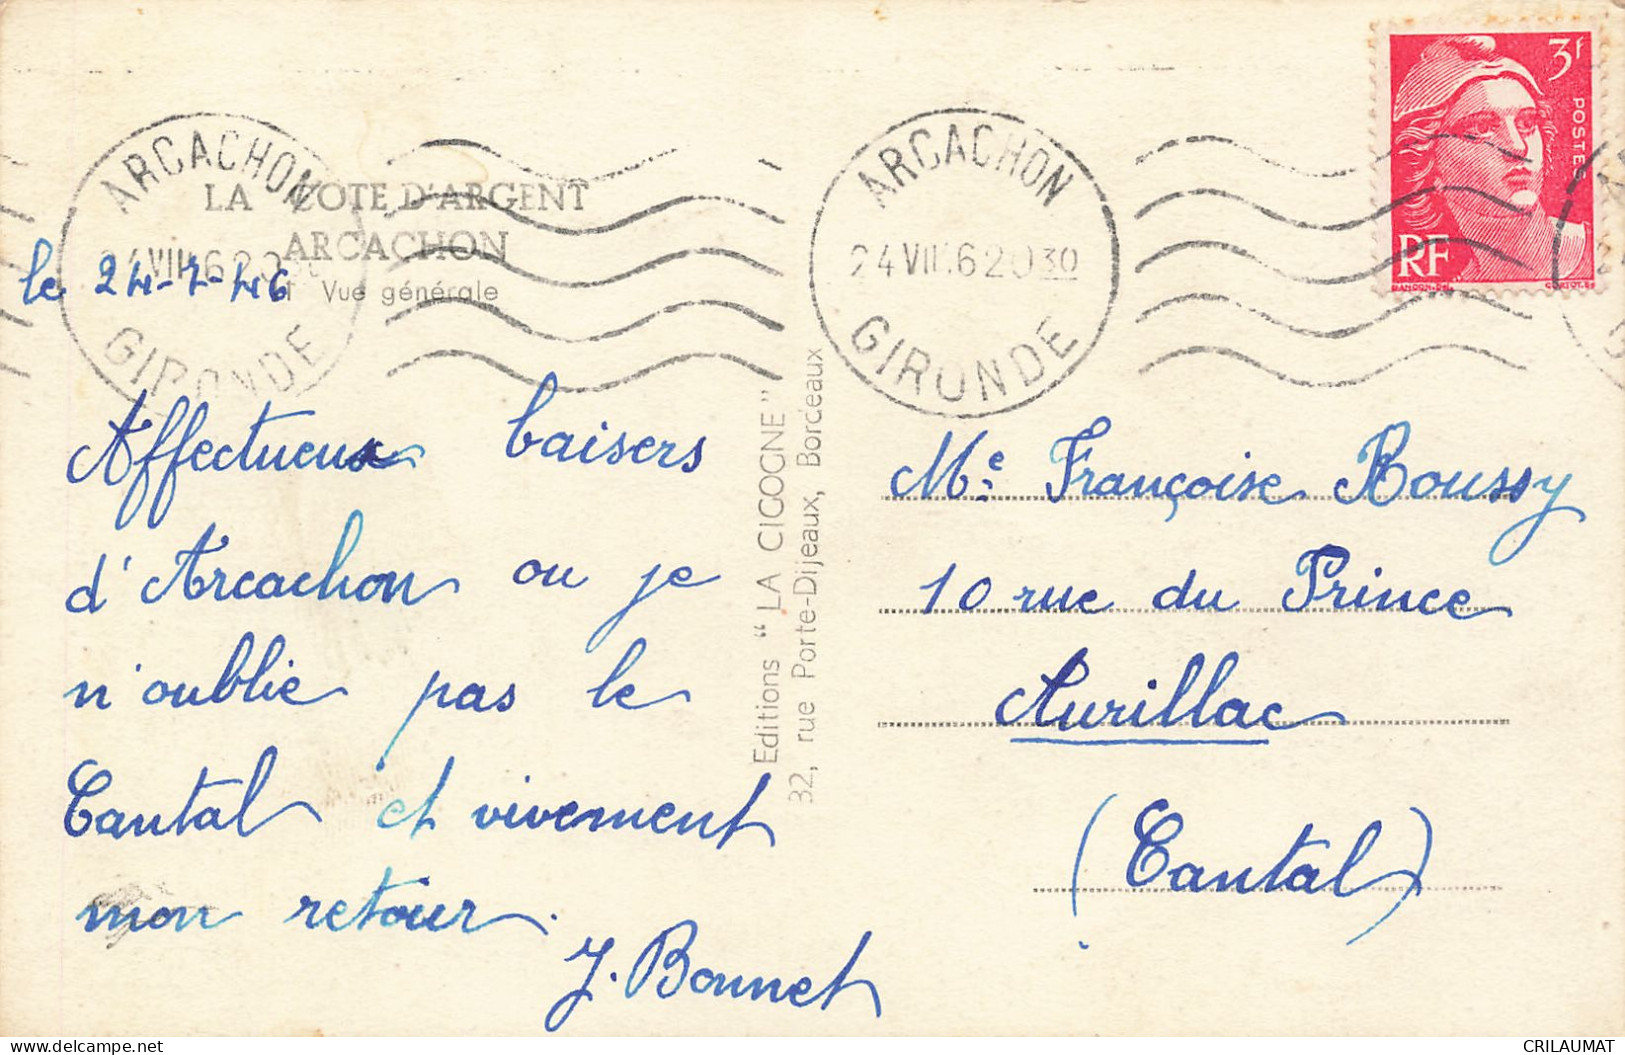 LA COTE D'ARGENT
ARCACHON
Vue générale
ARCACHON
GIRONDE
ARCACHON
24 VII 6 2030
GIRONDE
3f
POSTES
RF
le 24-7-46
Affectueux baisers
d'Arcachon ou je
n'oublie pas le
Cantal et vivement
mon retour.
J. Bonnet
Editions "LA CIGOGNE"
32, rue Porte-Dijeaux, Bordeaux
Me Françoise Roussy
10 rue du Prince
Aurillac
(Cantal)
delcampe.net
CRILAUMAT